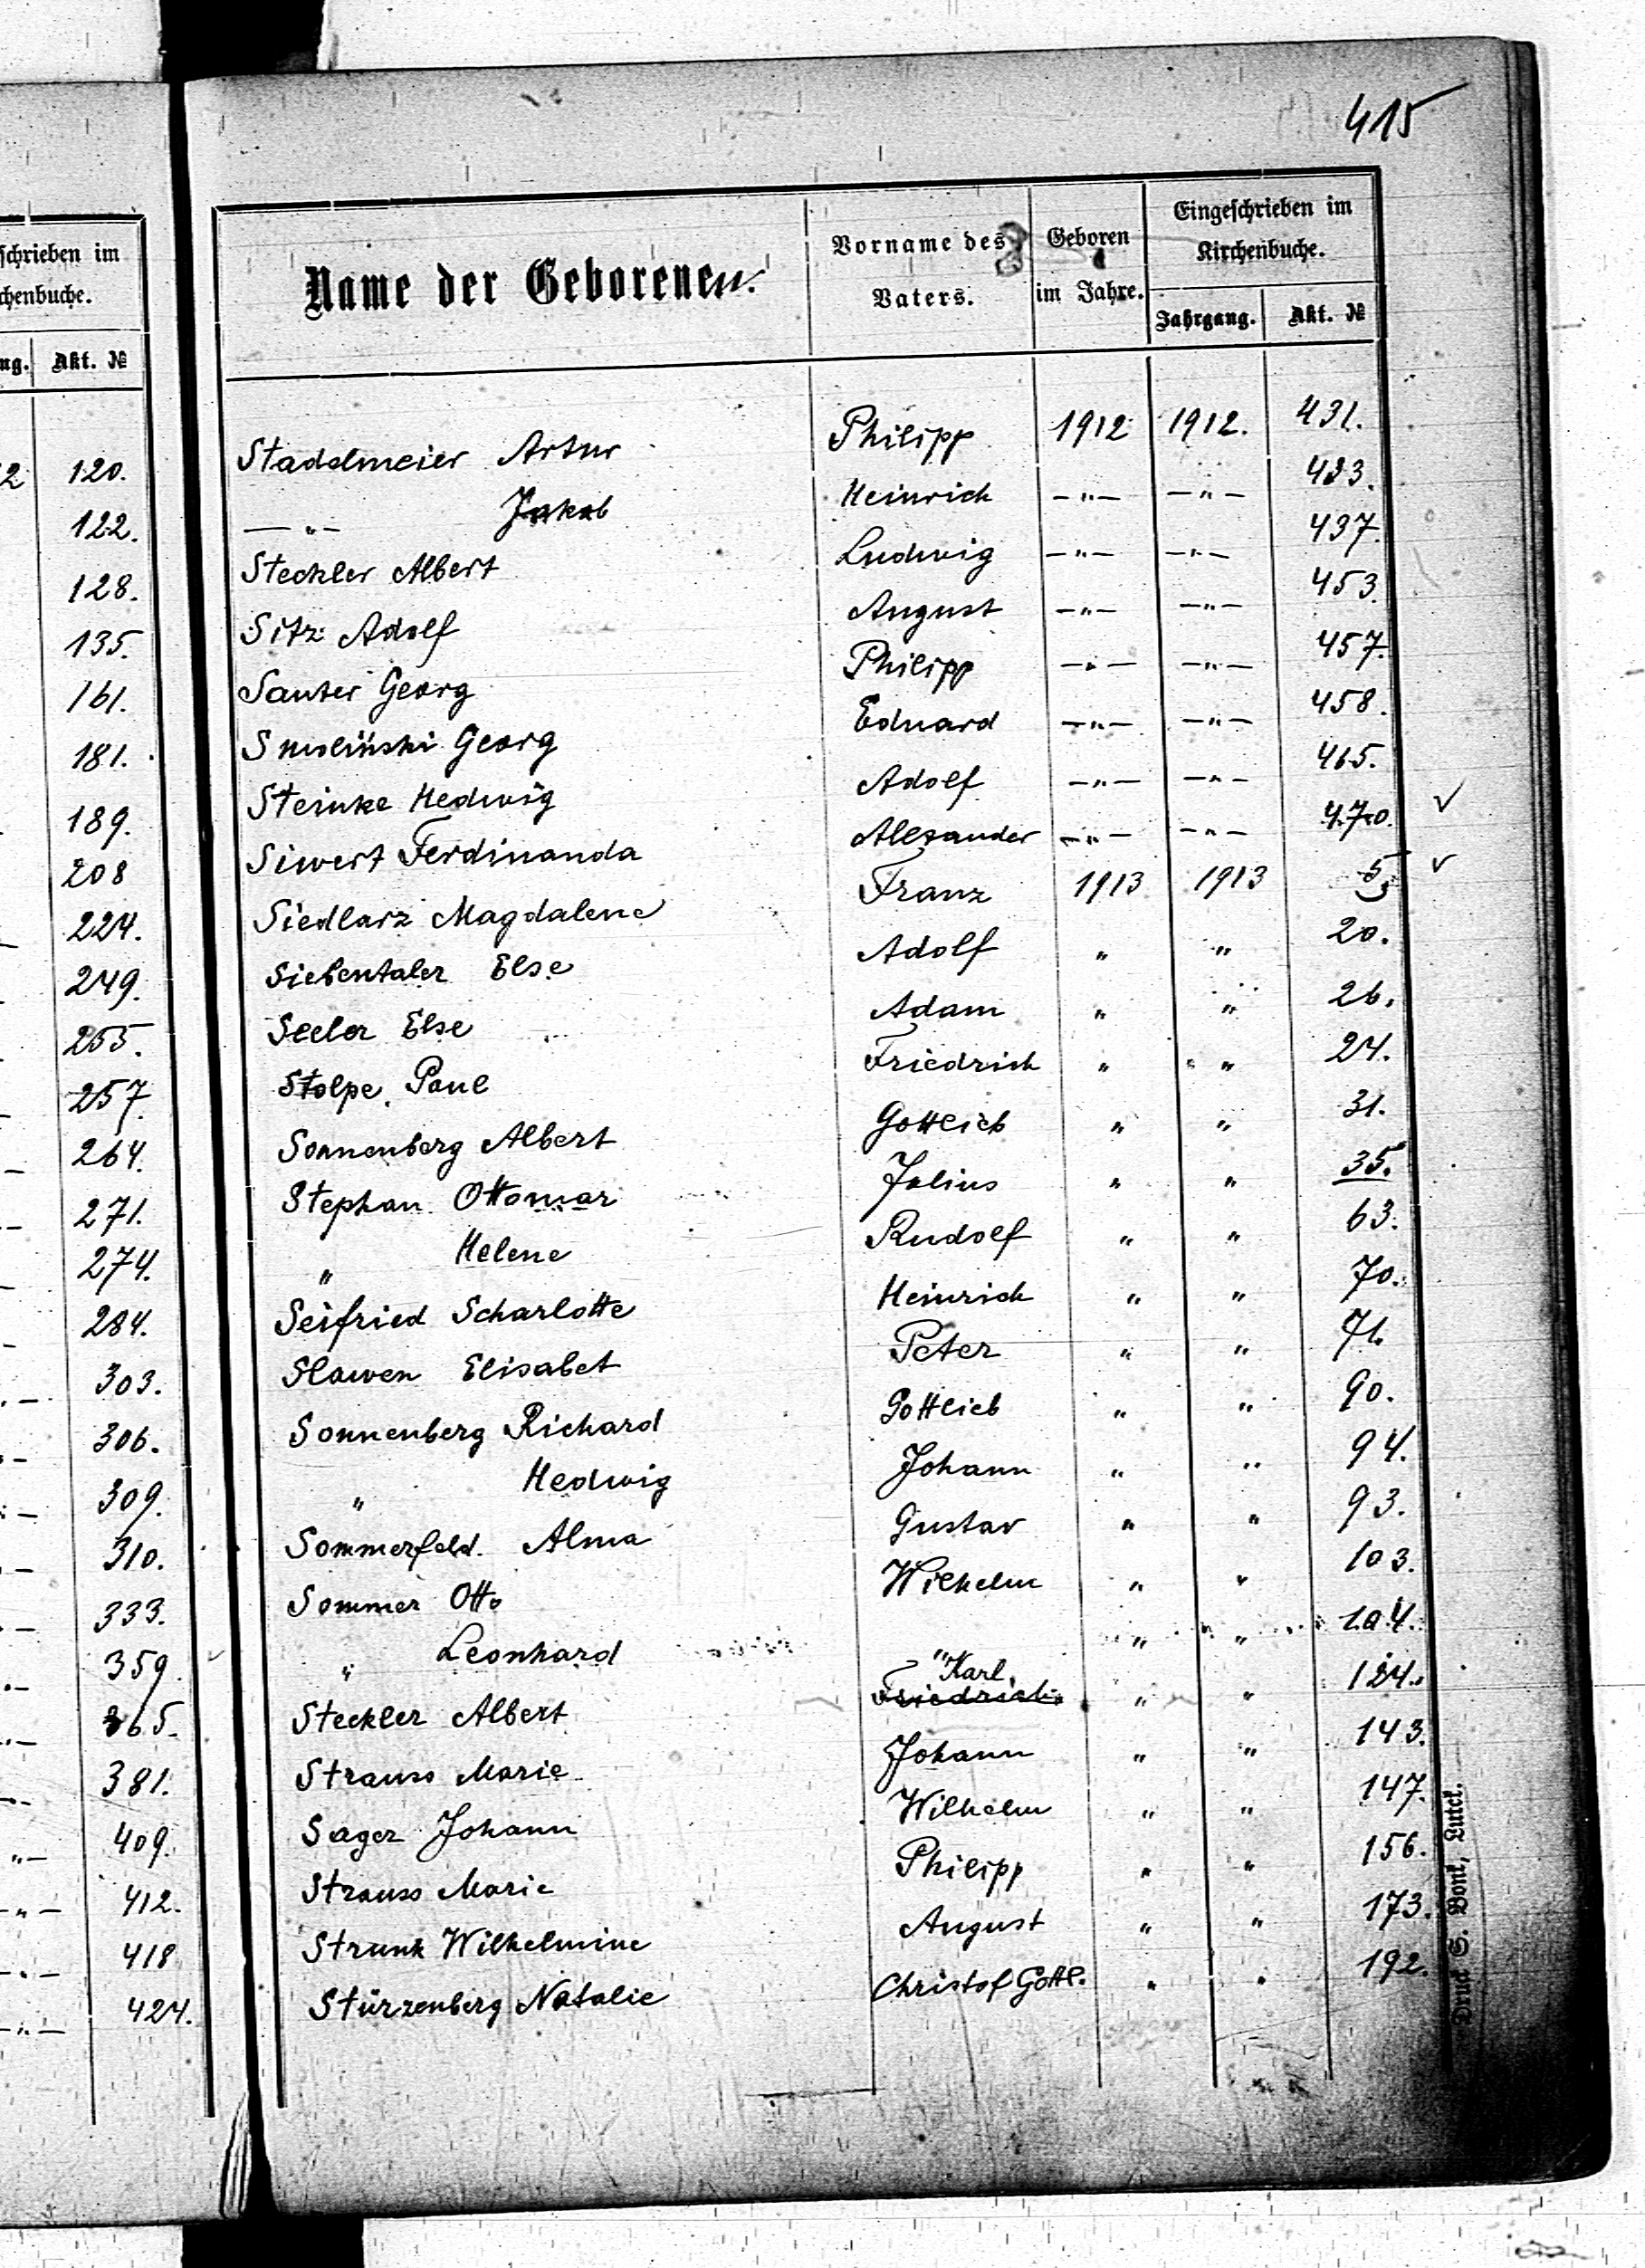 415
schrieben im
chenbuche.
ng. Akt. №
2 120.
122.
128.
135.
161.
181.
189.
208
224.
249.
255.
257.
264.
271.
274.
284.
303.
306.
309.
310.
333.
359.
365.
381.
409.
412.
418
424.
Name der Geborenen. Vorname des Vaters. Geboren im Jahre. Eingeschrieben im Kirchenbuche.
Jahrgang. Akt. №
Stadelmeier Artur Philipp 1912 1912. 431.
—"— Jakob Heinrich —"— —"— 433.
Steckler Albert Ludwig —"— —"— 437.
Sitz Adolf August —"— —"— 453.
Sauter Georg Philipp —"— —"— 457.
Smoliński Georg Eduard —"— —"— 458.
Steinke Hedwig Adolf —"— —"— 465.
Siwert Ferdinanda Alexander —"— —"— 470. ✓
Siedlarz Magdalene Franz 1913 1913 5 ✓
Siebentaler Else Adolf " " 20.
Seeler Else Adam " " 26.
Stolpe, Paul Friedrich " " 24.
Sonnenberg Albert Gottlieb " " 31.
Stephan Ottomar Julius " " 35.
" Helene Rudolf " " 63.
Seifried Scharlotte Heinrich " " 70.
Slawen Elisabet Peter " " 71.
Sonnenberg Richard Gottlieb " " 90.
" Hedwig Johann " " 94.
Sommerfeld. Alma Gustav " " 93.
Sommer Otto Wilhelm " " 103.
" Leonhard " " " 104.
Steckler Albert Karl Friedrich " " 124.
Strauss Marie Johann " " 143.
Sager Johann Wilhelm " " 147.
Strauss Marie Philipp " " 156.
Strunk Wilhelmine August " " 173.
Stürzenberg Natalie Christof Gottl. " " 192.
Druck S. Bonk, Luck.